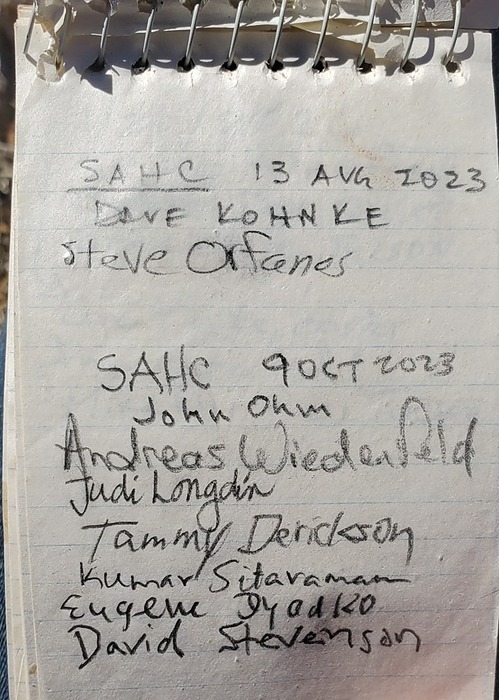 SAHC 13 AUG 2023
DAVE KOHNKE
Steve Orfanos
SAHC 9 OCT 2023
John Ohm
Andreas Wiedenfeld
Judi Longdin
Tammy Derickson
Kumar Sitaraman
Eugene Dyadko
David Stevenson